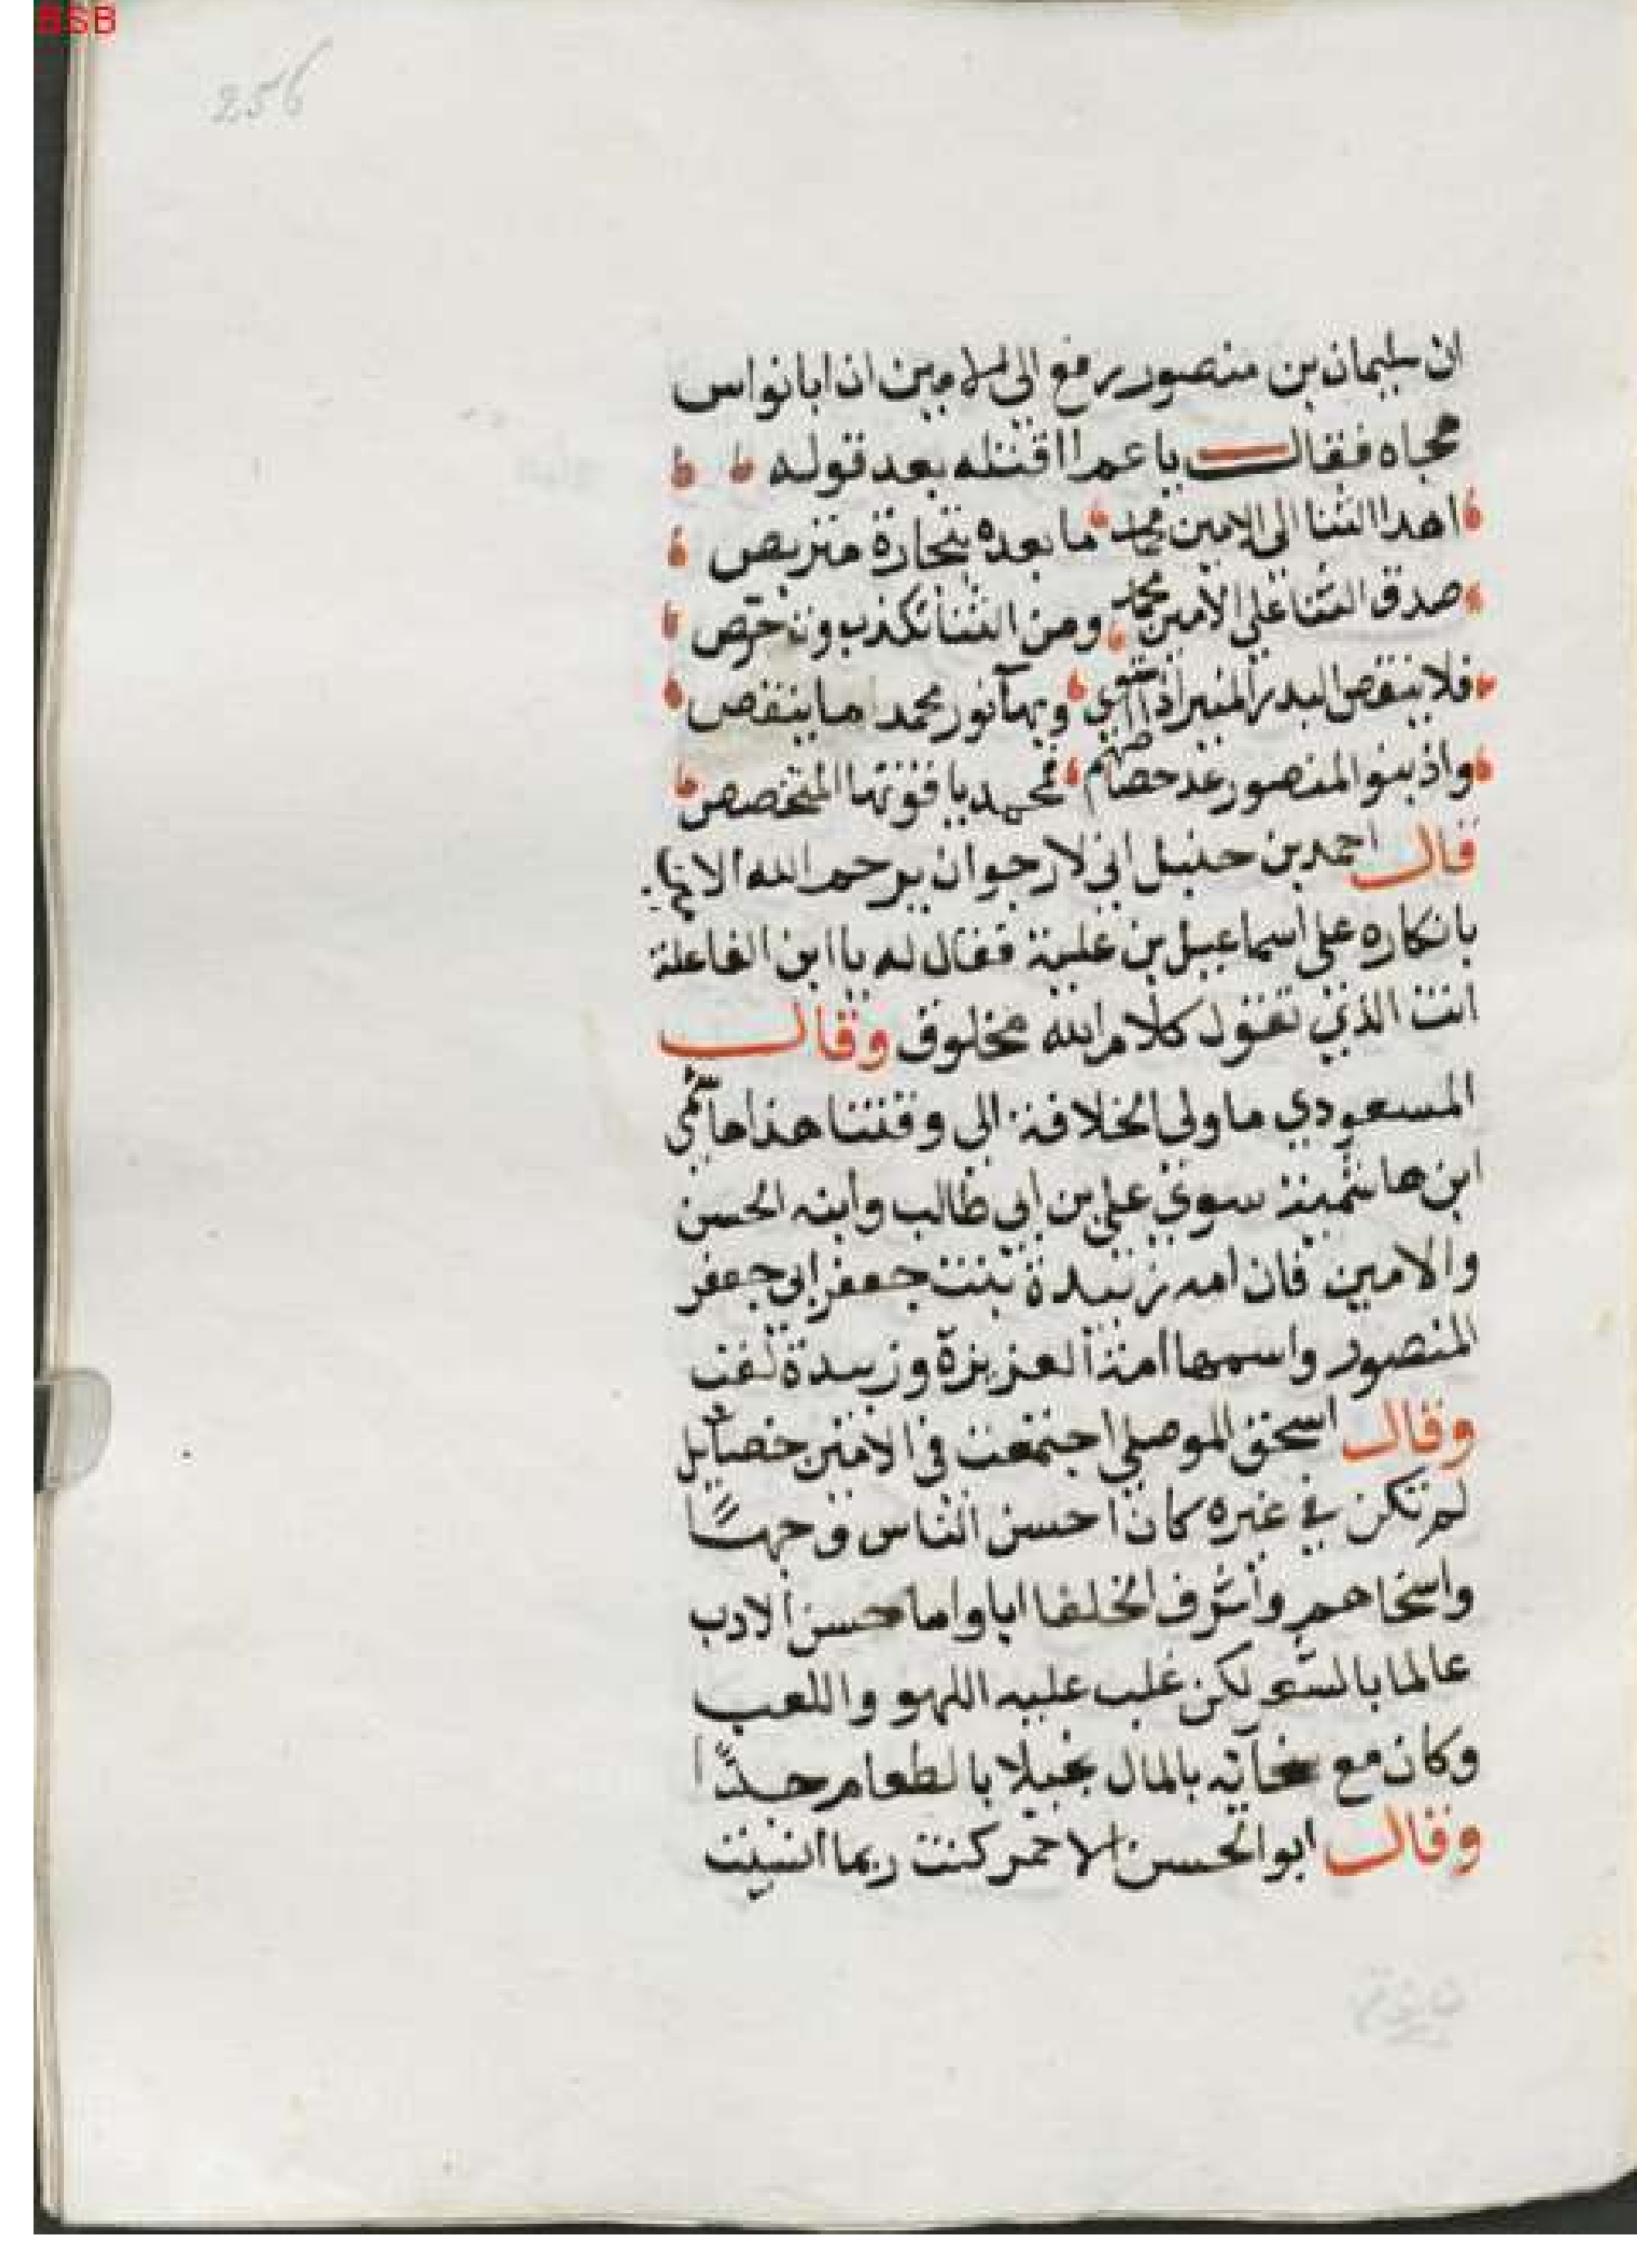 BSB
256
ان سليمان بن منصور رفع الى الامين ان ابا نواس
هجاه فقال يا عم اا قتله بعد قوله
اهدا الثنا الى الامين محمد ما بعده بتجارة متربص
صدق الثنا على الامين محمد ومن الثنا تكذب وتخرص
فلا ينقص البدر المنير اذا وبها نور محمد ما ينقص
واذ بنوا المنصور عد حصاهم فمحمد ياقوتها المتخصص
قال احمد بن حنبل اني لارجوا ان يرحم الله الامين
بانكاره على اسماعيل بن علية فقال له يا ابن الفاعلة
انت الذي تقول كلام الله مخلوق وقال
المسعودي ما ولي الخلافة الى وقتنا هذا هاشمي
ابن هاشمية سوى علي بن ابي طالب وابنه الحسن
والامين فان امه زبيدة بنت جعفر ابي جعفر
المنصور واسمها امة العزيزة وزبيدة لقب
وقال اسحق الموصلي اجتمعت في الامين خصايل
لم تكن في غيره كان احسن الناس وجها
واسخاهم واشرف الخلفا ابا واما حسن الادب
عالما بالشعر لكن غلب عليه اللهو واللعب
وكان مع سخآئه بالمال بخيلا بالطعام جدا
وقال ابو الحسن الاحمر كنت ربما انسيت